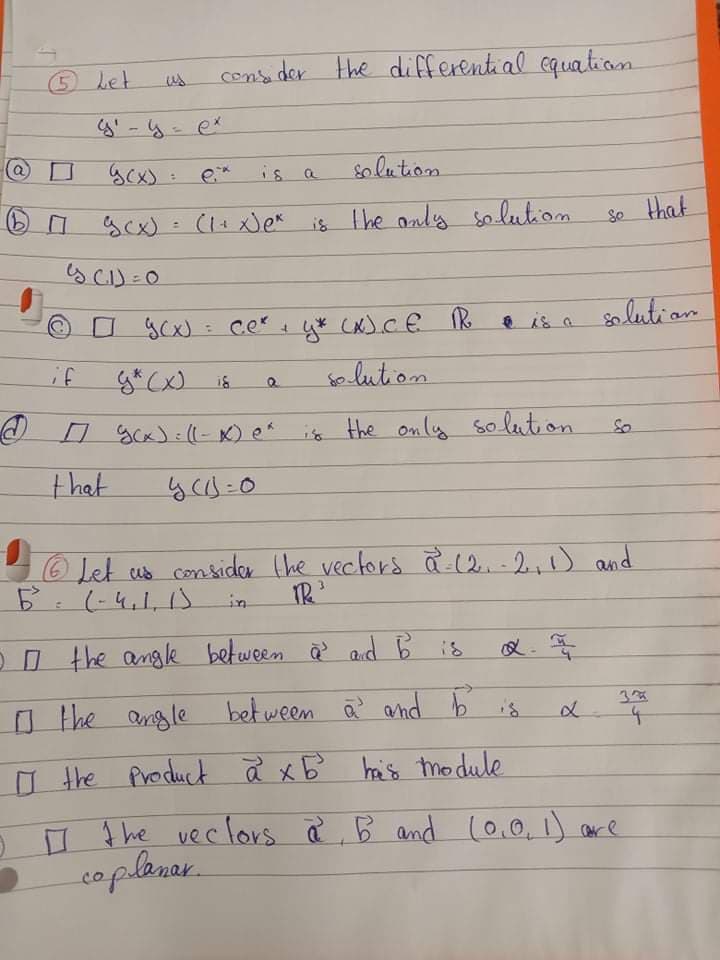 ⑤ Let us consider the differential equation
y' - y = eˣ
ⓐ □ y(x) = e⁻ˣ is a solution
ⓑ □ y(x) = (1+x)eˣ is the only solution so that
y(1)=0
ⓒ □ y(x) = c.eˣ + y*(x). c ∈ ℝ is a solution
if y*(x) is a solution
ⓓ □ y(x) = (1-x)eˣ is the only solution so
that y(1)=0
⑥ Let us consider the vectors a⃗ = (2, -2, 1) and
b⃗ = (-4, 1, 1) in ℝ³
□ the angle between a⃗ and b⃗ is α = π/4
□ the angle between a⃗ and b⃗ is α = 3π/4
□ the product a⃗ x b⃗ has module
□ the vectors a⃗, b⃗ and (0,0,1) are
coplanar.